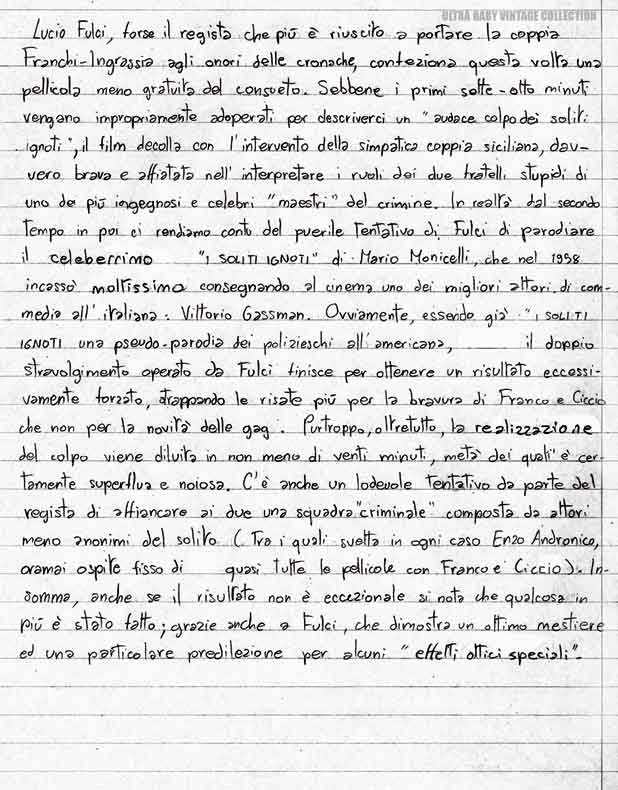 ULTRA BABY VINTAGE COLLECTION
Lucio Fulci, forse il regista che più è riuscito a portare la coppia
Franchi-Ingrassia agli onori delle cronache, confeziona questa volta una
pellicola meno gratuita del consueto. Sebbene i primi sette-otto minuti
vengano impropriamente adoperati per descriverci un "audace colpo dei soliti
ignoti", il film decolla con l'intervento della simpatica coppia siciliana, dav-
vero brava e affiatata nell'interpretare i ruoli dei due fratelli stupidi di
uno dei più ingegnosi e celebri "maestri" del crimine. In realtà dal secondo
tempo in poi ci rendiamo conto del puerile tentativo di Fulci di parodiare
il celeberrimo "I SOLITI IGNOTI" di Mario Monicelli, che nel 1958
incassò moltissimo consegnando al cinema uno dei migliori attori di com-
media all'italiana: Vittorio Gassman. Ovviamente, essendo già "I SOLITI
IGNOTI una pseudo-parodia dei polizieschi all'americana, il doppio
stravolgimento operato da Fulci finisce per ottenere un risultato eccessi-
vamente forzato, strappando le risate più per la bravura di Franco e Ciccio
che non per la novità delle gag. Purtroppo, oltretutto, la realizzazione
del colpo viene diluita in non meno di venti minuti, metà dei quali è cer-
tamente superflua e noiosa. C'è anche un lodevole tentativo da parte del
regista di affiancare ai due una squadra "criminale" composta da attori
meno anonimi del solito (Tra i quali svetta in ogni caso Enzo Andronico,
oramai ospite fisso di quasi tutte le pellicole con Franco e Ciccio). In-
somma, anche se il risultato non è eccezionale si nota che qualcosa in
più è stato fatto; grazie anche a Fulci, che dimostra un ottimo mestiere
ed una particolare predilezione per alcuni "effetti ottici speciali".